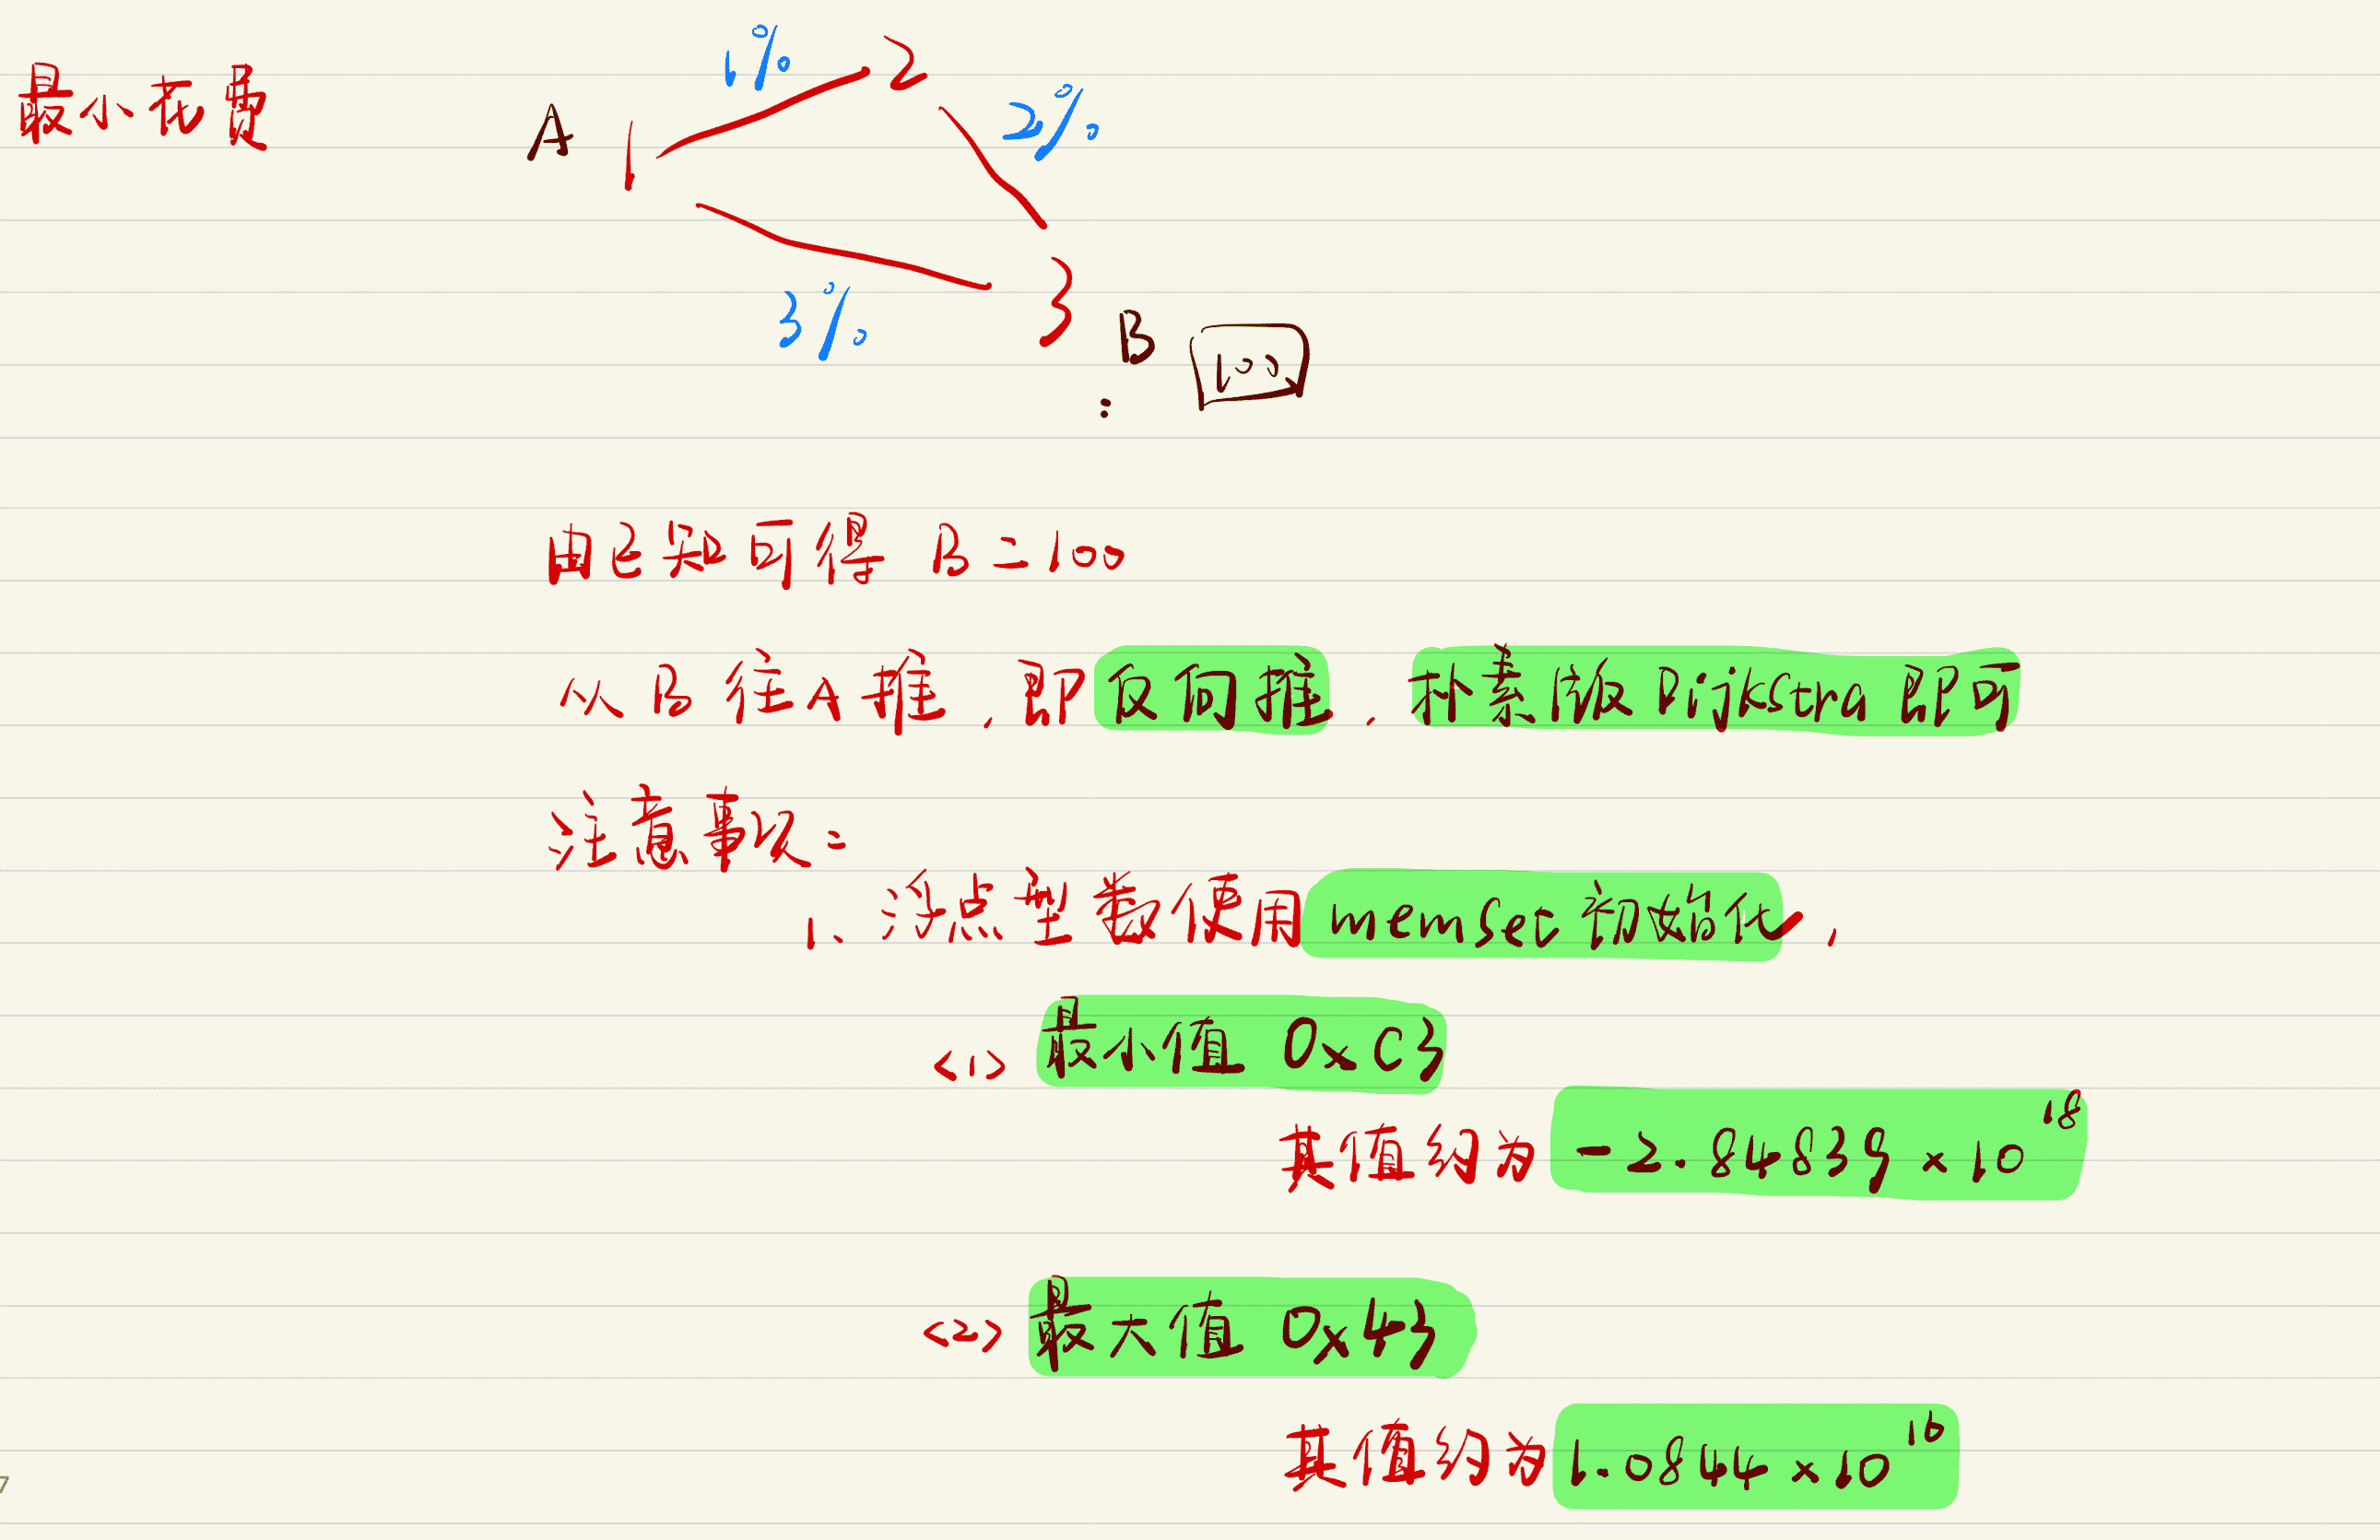 最小花费
1%
2
2%
A 1
3%
3
B 100
由已知可得 B=100
从B往A推,即反向推,朴素版Dijkstra即可
注意事项:
1、浮点型数使用memset初始化,
<1> 最小值 0xC3
其值约为 -2.84839×10^18
<2> 最大值 0x43
其值约为 1.0844×10^16